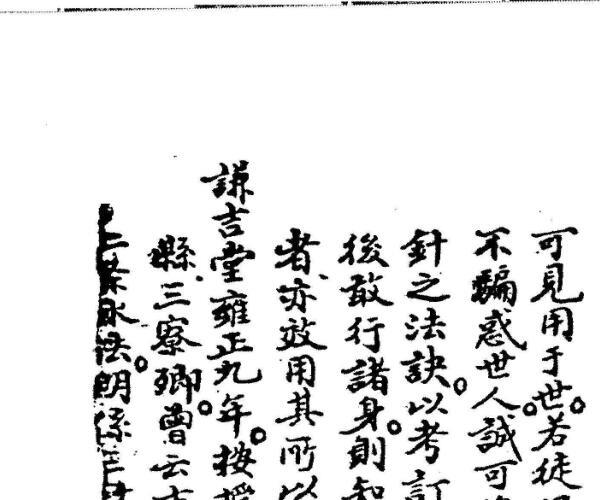 可見用于世。若徒
不騙惑世人。誠可
針之法訣。以考訂
後敢行諸身。則知
者、亦效用其所以
謙吉堂雍正九年。按
縣、三寮鄉。曾云
法。朗係